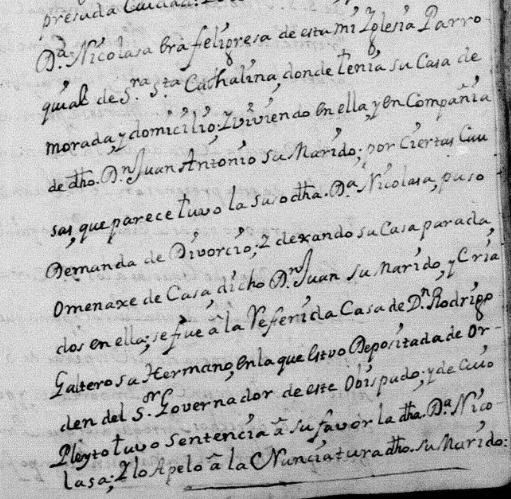 presada Ciudad:
Dª. Nicolasa Era feligresa de esta mi Yglesia Parro-
quial de Sra. Sta. Cathalina, donde tenia su Casa de
morada, y domicilio; Y viviendo en ella, y en Compañia
de dho. Dn. Juan Antonio su Marido; por Ciertas Cau
sas, que parece tuvo la susodha. Dª. Nicolasa, puso
Demanda de Divorcio; Y dexando su Casa parada,
Omenaxe de Casa, dicho Dn. Juan su Marido, y Cria
dos en ella; se fue â la Referida Casa de Dn. Rodrigo
Galtero su Hermano, en la que Estvo Depositada de Or-
den del Sr. Governador de este Obispado; y de Cuio
Pleyto tuvo Sentencia â su favor la dha. Dª. Nico
lasa; Y lo Apelo â la Nunciatura dho. su Marido: